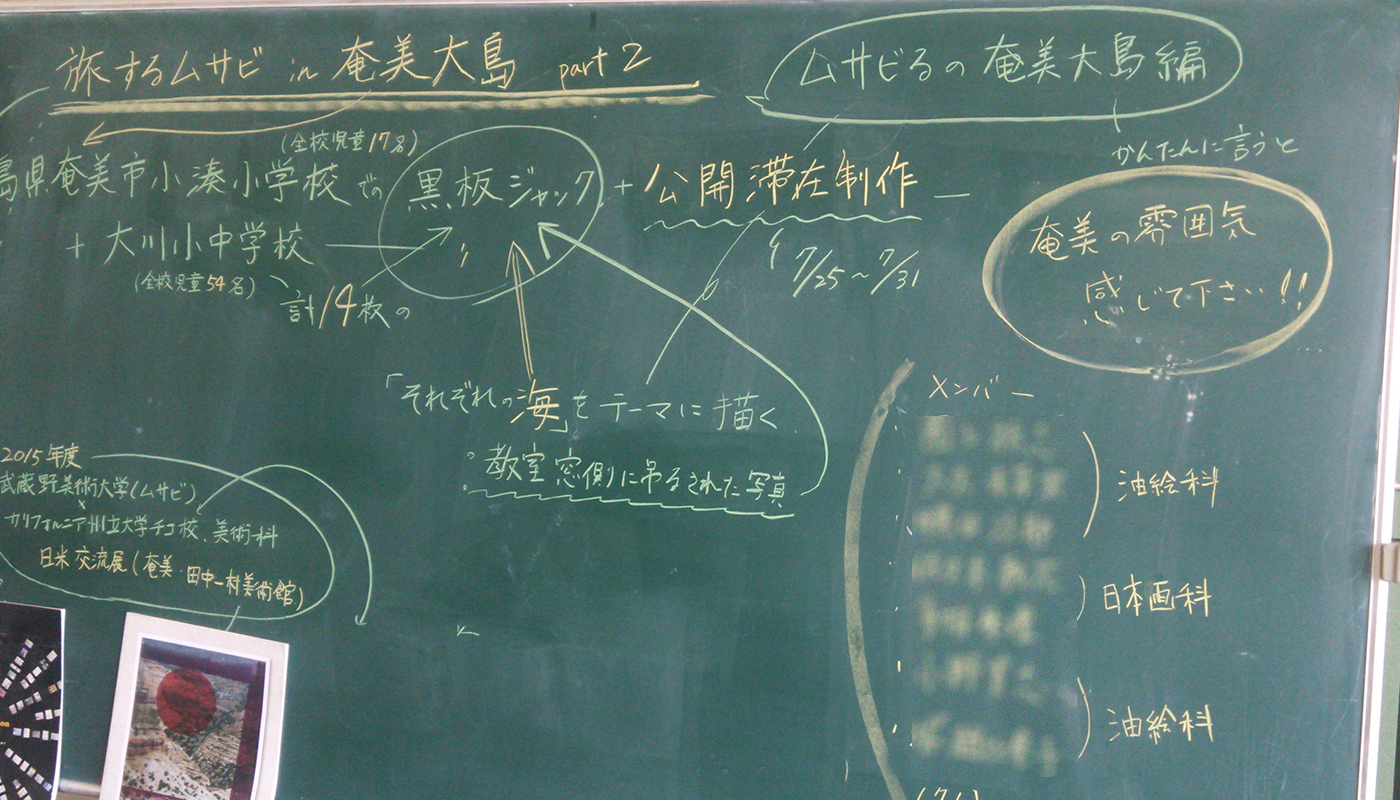 旅するムサビ in 奄美大島 part 2
ムサビるの奄美大島編
(全校児童17名)
島県奄美市小湊小学校での黒板ジャック + 公開滞在制作 ー
+ 大川小中学校
(全校児童54名)
計14枚の
7/25〜7/31
かんたんに言うと
奄美の雰囲気
感じて下さい!!
「それぞれの海」をテーマに描く
教室窓側に吊るされた写真
メンバー
油絵科
日本画科
油絵科
2015年度
武蔵野美術大学(ムサビ)
×
カリフォルニア州立大学チコ校、美術科
日米交流展(奄美・田中一村美術館)